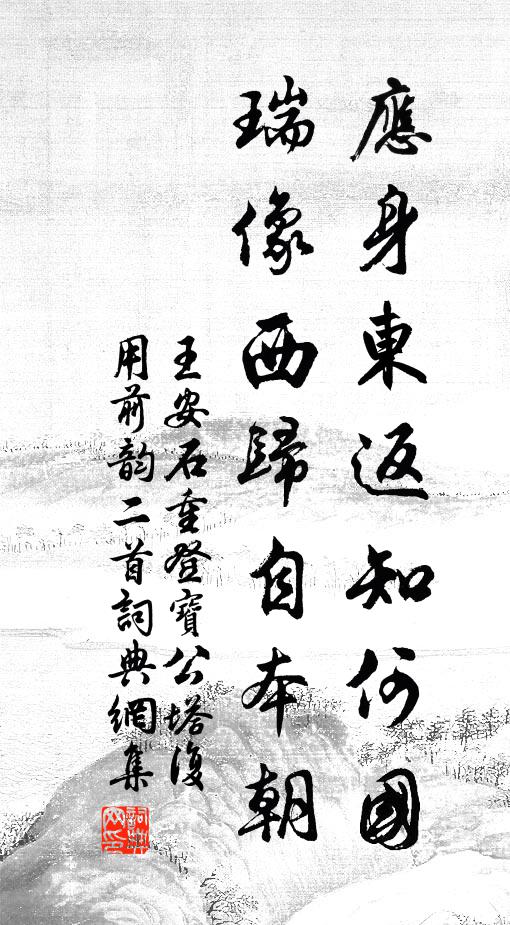 應身東返知何國
瑞像西歸自本朝
王安石重登寶公塔復
用前韵二首詞典網集